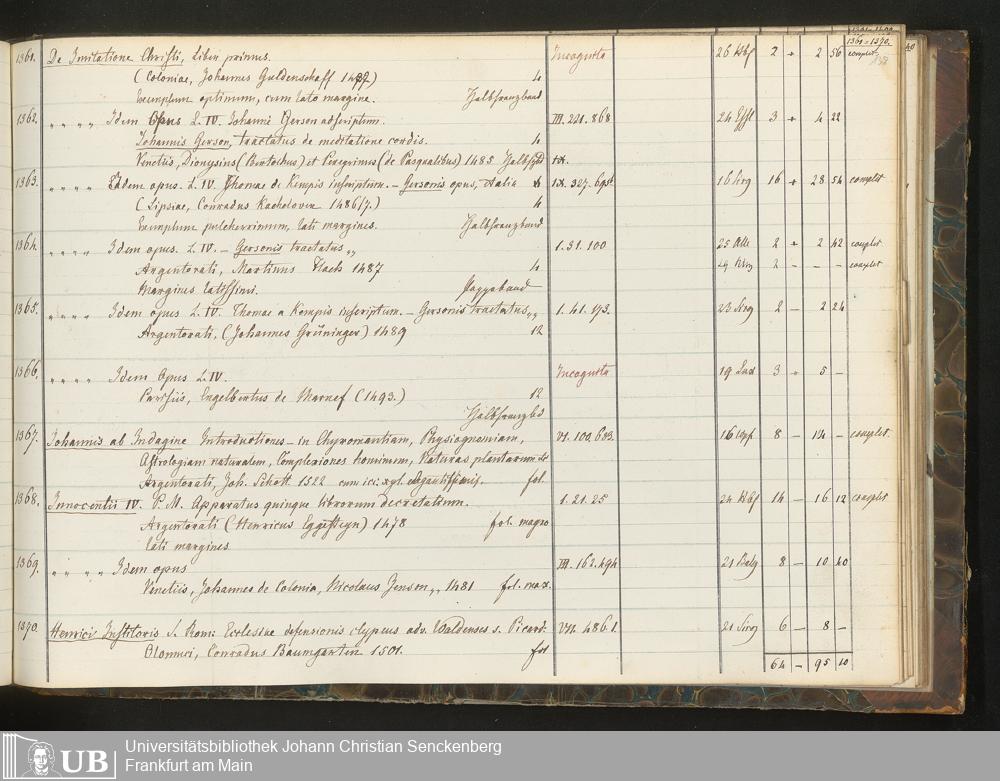 1361–1370.
1361. De Imitatione Christi, Liber primus. Incognita 26 2 + 2 56 complet
(Coloniae, Johannes Guldenschaff 1487) 4
Exemplum optimum, cum lato margine. Halbfranzband
1362. " " " " Idem Opus L. IV. Johanni Gerson adscriptum. III. 221. 868 24 3 + 4 22
Johannis Gerson, tractatus de meditatione cordis. 4
Venetiis, Dionysius (Bertochus) et Peregrinus (de Pasqualibus) 1485 IX.
1363. " " " " Idem opus. L. IV. Thomae de Kempis inscriptum. – Gersonis opus, IX. 327. 16 16 + 28 54 complet
(Lipsiae, Conradus Kacheloven 1486/7.) 4
Exemplum pulcherrimum, lati margines. Halbfranzband
1364. " " " " Idem opus. L. IV. – Gersonis tractatus „ 1. 51. 100 25 2 + 2 42 complet
Argentorati, Martinus Flach 1487 4 29 2 – – – complet
Margines latissimi. Pappband
1365. " " " " Idem opus L. IV. Thomae a Kempis inscriptum. – Gersonis tractatus „ 1. 41. 173. 23 2 – 2 24
Argentorati, (Johannes Grüninger) 1489 12
1366. " " " " Idem Opus L. IV. Incognita 19 3 – 5 –
Parisiis, Engelbertus de Marnef (1493.) 12
Halbfranzbd
1367. Johannis ab Indagine Introductiones – in Chyromantiam, Physiognomiam, VI. 100. 603. 16 8 – 14 – complet.
Astrologiam naturalem, Complexiones hominum, Naturas plantarum
Argentorati, Joh. Schott. 1522 cum ici: xyl. elegantissimis. fol.
1368. Innocentii IV. P. M. Apparatus quinque librorum decretalium. 1. 21. 25 24 14 – 16 12 complet
Argentorati (Henricus Eggesteyn) 1478 fol. magno
lati margines.
1369. " " " " Idem opus III. 162. 494 21 8 – 10 40
Venetiis, Johannes de Colonia, Nicolaus Jenson „ 1481 fol. max.
1370. Henrici Institoris S. Rom: Ecclesiae defensionis clypeus adv. Waldenses s. Picard. VII. 486. 1 21 6 – 8 –
Olomuci, Conradus Baumgarten 1501. fol
64 – 95 10
UB
Universitätsbibliothek Johann Christian Senckenberg
Frankfurt am Main